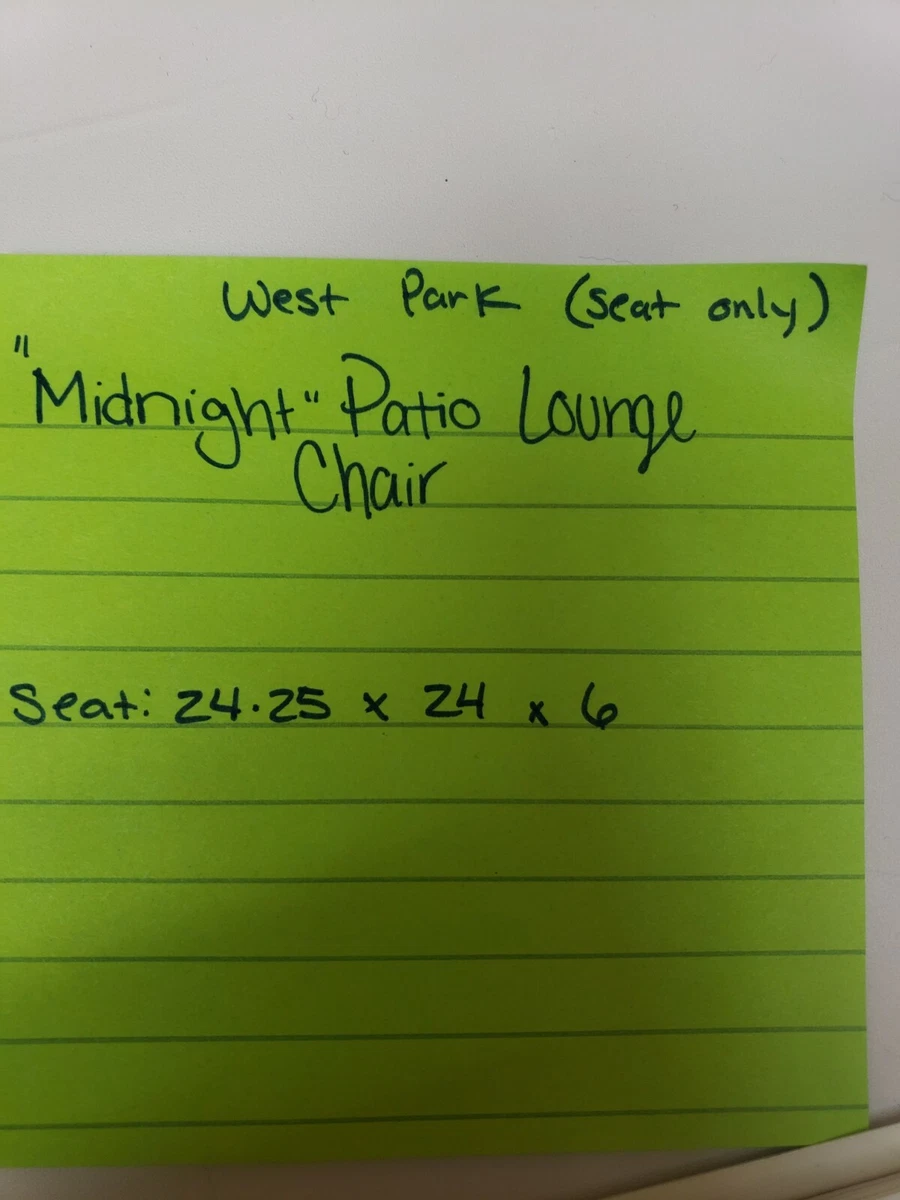 West Park (seat only)
"Midnight" Patio Lounge
Chair
Seat: 24.25 x 24 x 6